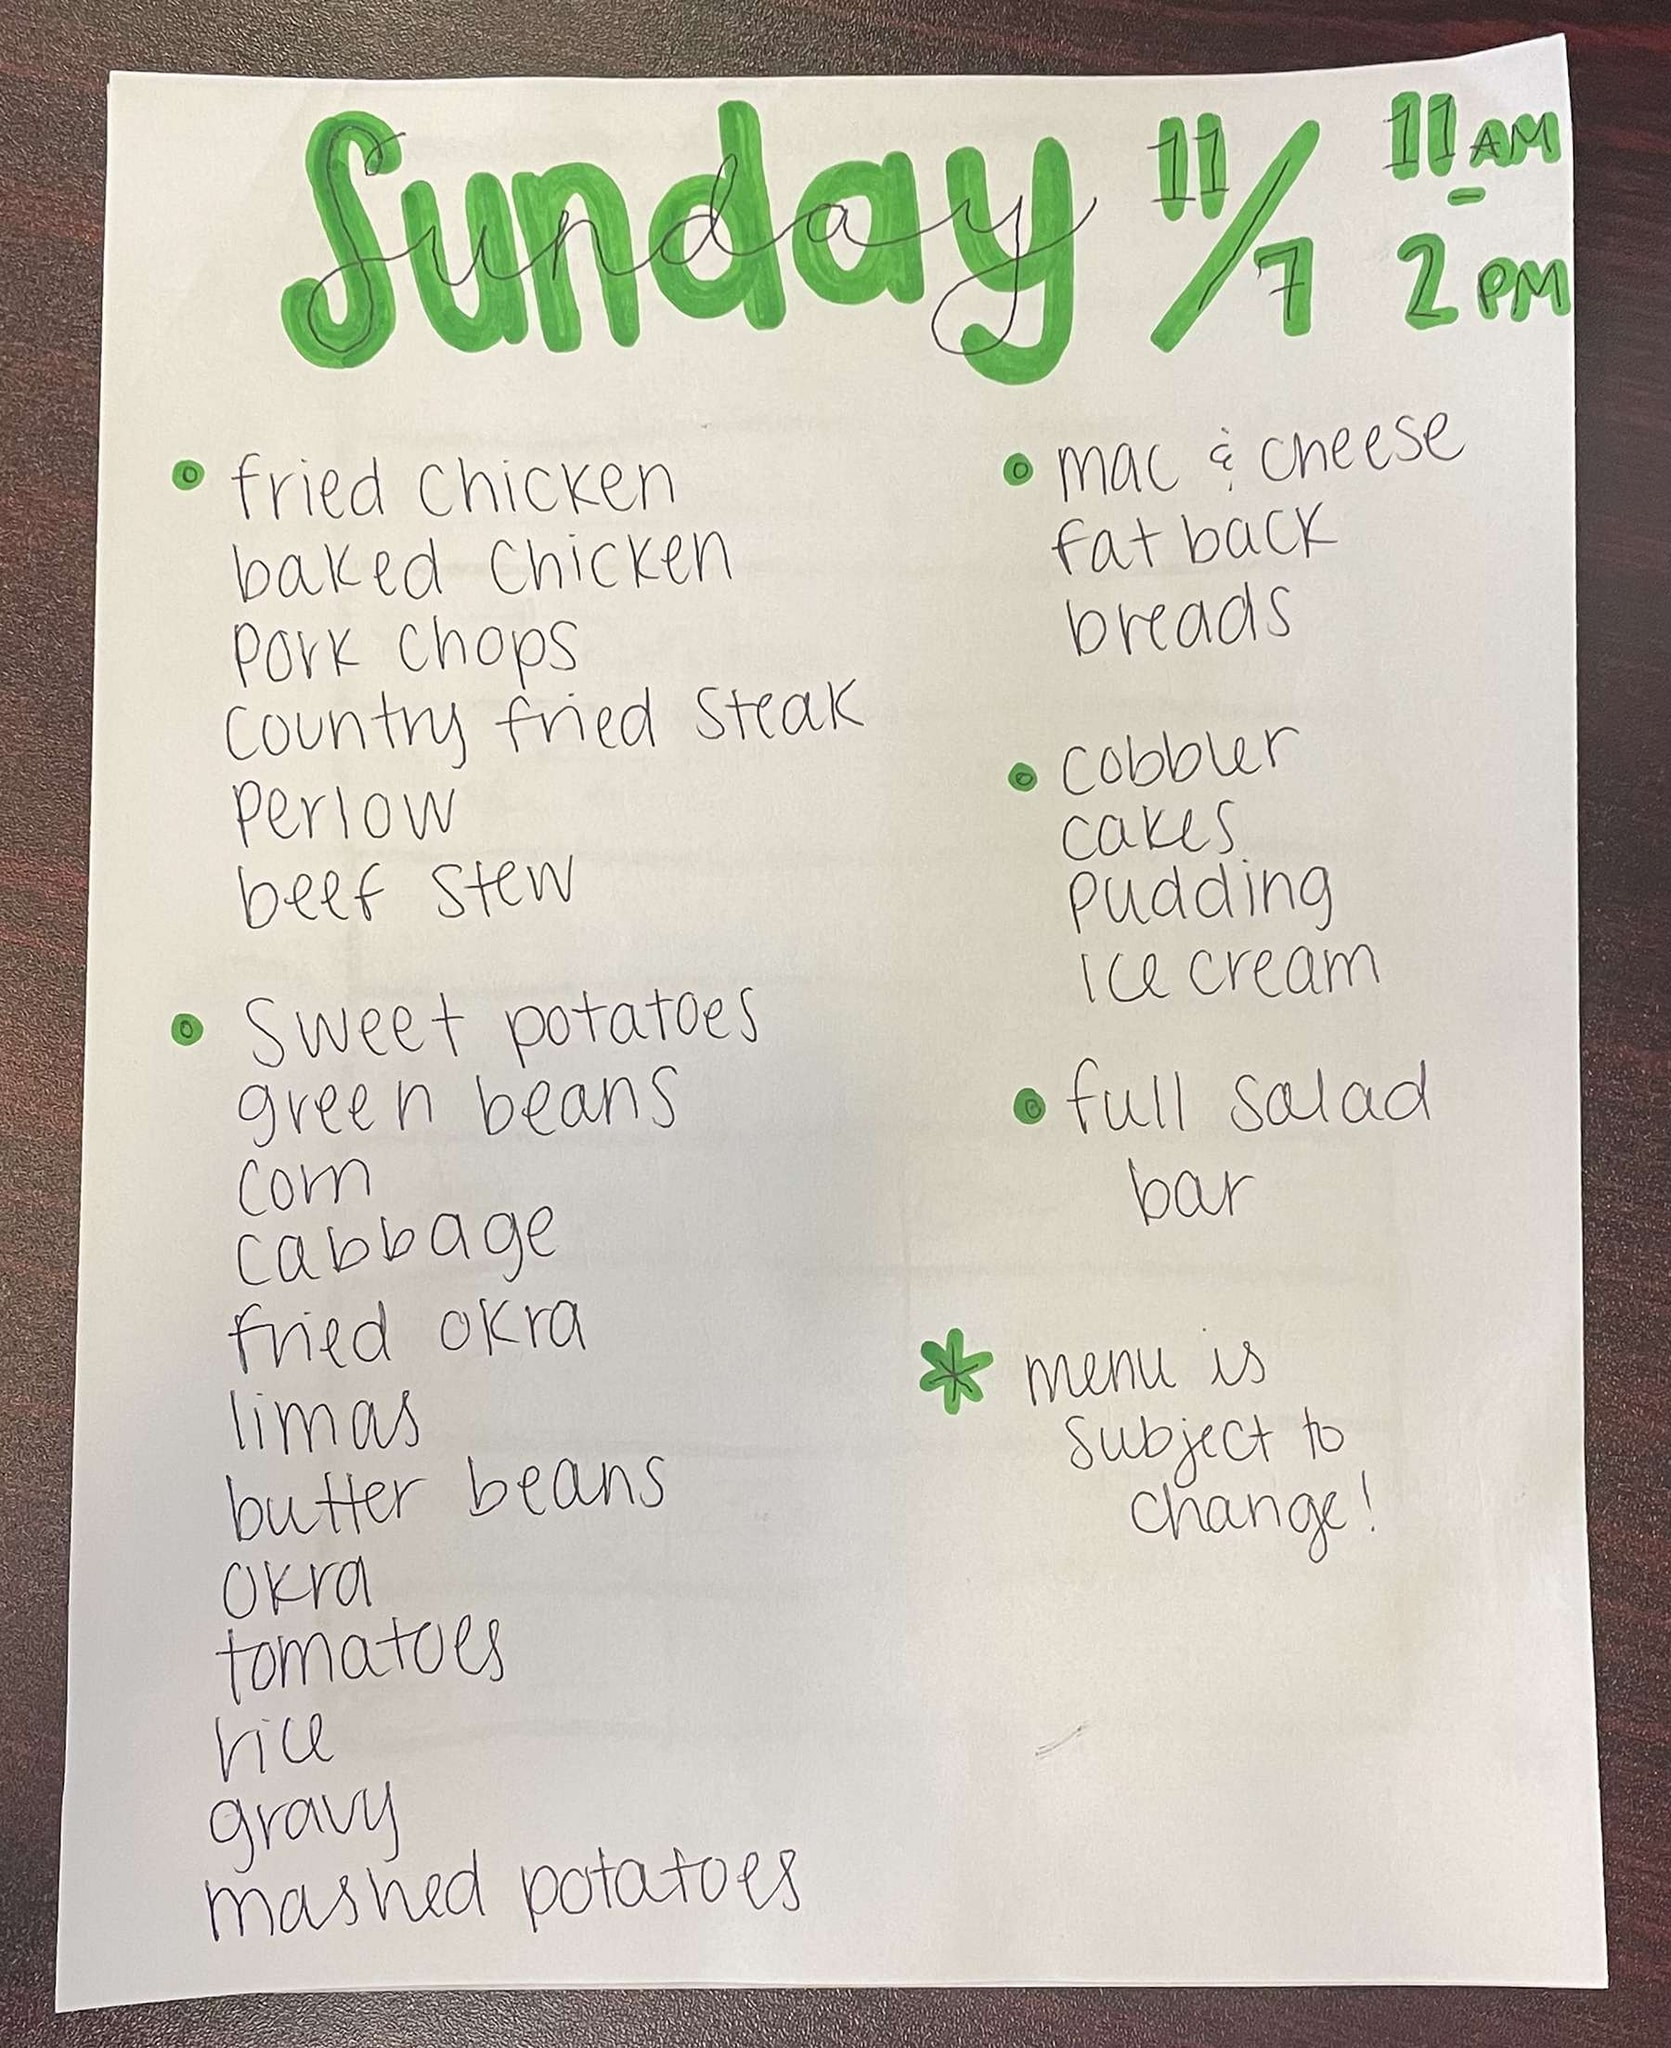 Sunday 11/7 11 AM - 2 PM
fried chicken
baked chicken
pork chops
country fried steak
perlow
beef stew
sweet potatoes
green beans
corn
cabbage
fried okra
limas
butter beans
okra
tomatoes
rice
gravy
mashed potatoes
mac & cheese
fatback
breads
cobbler
cakes
pudding
ice cream
full salad
bar
* menu is
subject to
change!